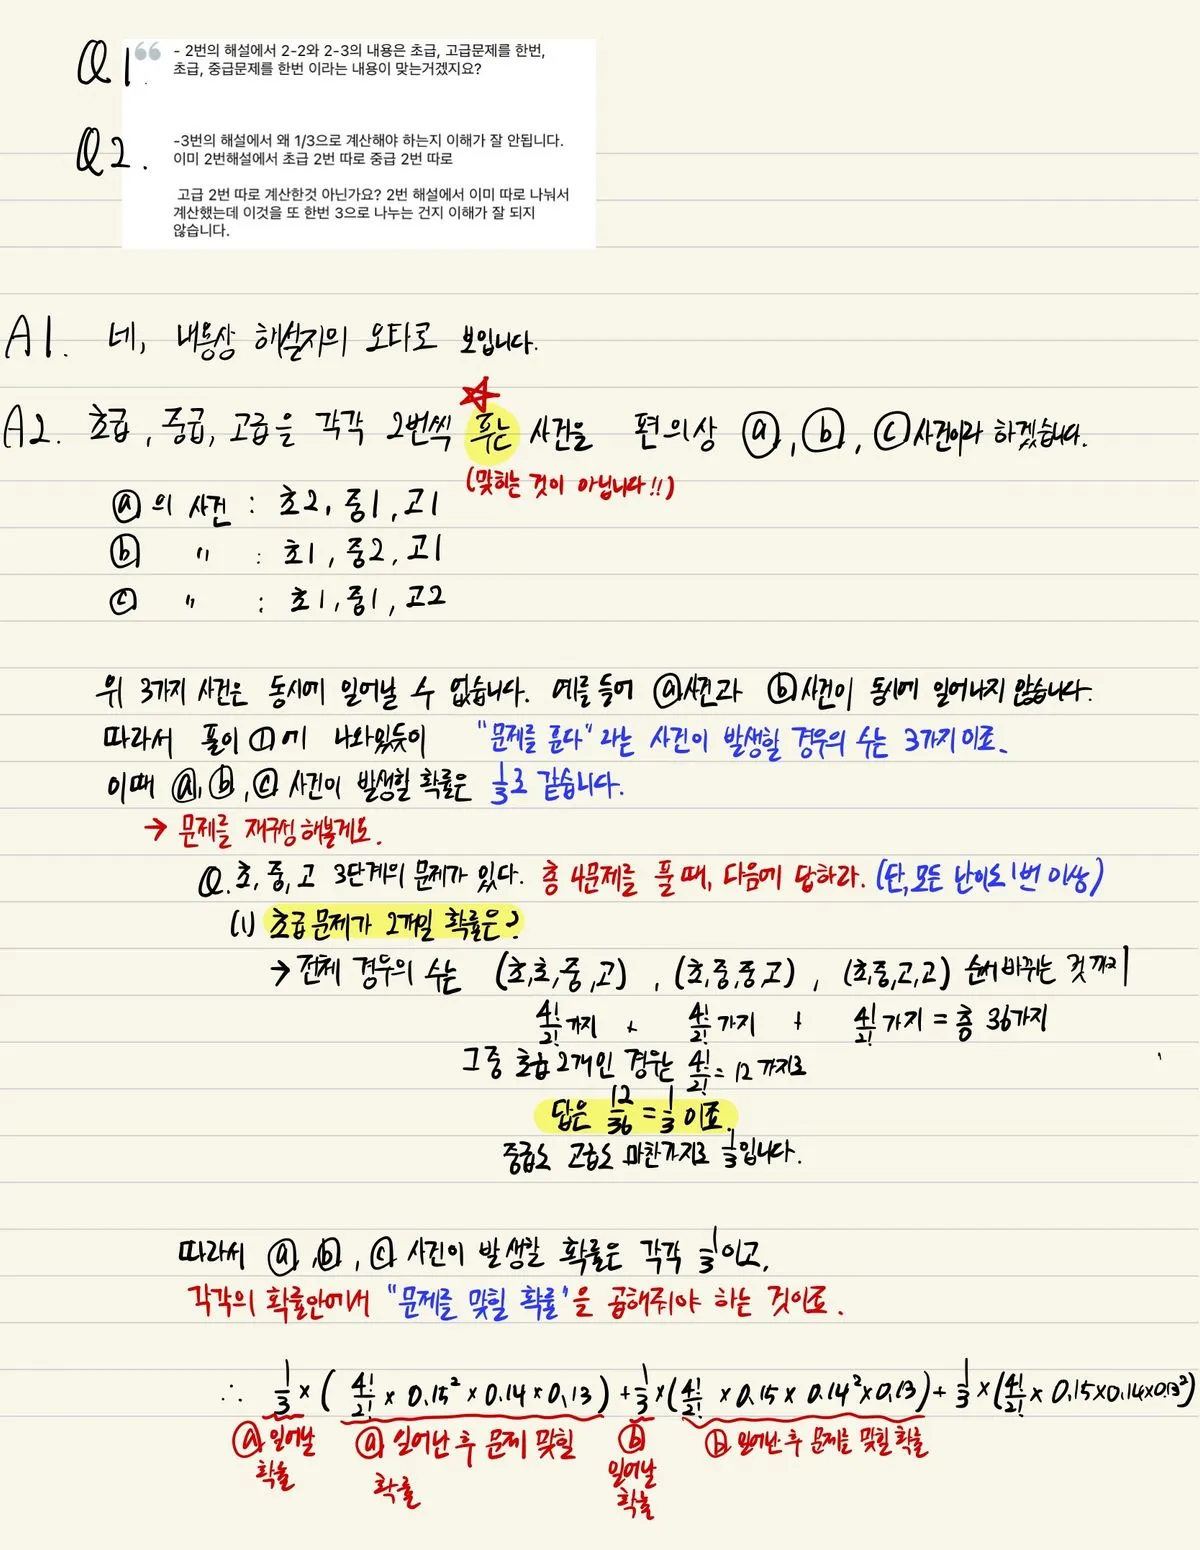 Q1.
- 2번의 해설에서 2-2와 2-3의 내용은 초급, 고급문제를 한번,
초급, 중급문제를 한번 이라는 내용이 맞는거겠지요?
Q2.
-3번의 해설에서 왜 1/3으로 계산해야 하는지 이해가 잘 안됩니다.
이미 2번해설에서 초급 2번 따로 중급 2번 따로
고급 2번 따로 계산한것 아닌가요? 2번 해설에서 이미 따로 나눠서
계산했는데 이것을 또 한번 3으로 나누는 건지 이해가 잘 되지
않습니다.
A1. 네, 내용상 해설자의 오타로 보입니다.
A2. 초급, 중급, 고급을 각각 2번씩 푸는 사건을 편의상 ⓐ, ⓑ, ⓒ사건이라 하겠습니다.
(맞히는 것이 아닙니다!!)
ⓐ의 사건 : 초2, 중1, 고1
ⓑ 〃 : 초1, 중2, 고1
ⓒ 〃 : 초1, 중1, 고2
위 3가지 사건은 동시에 일어날 수 없습니다. 예를 들어 ⓐ사건과 ⓑ사건이 동시에 일어나지 않습니다.
따라서 풀이 ①에 나와있듯이 "문제를 푼다"라는 사건이 발생할 경우의 수는 3가지이죠.
이때 ⓐ, ⓑ, ⓒ 사건이 발생할 확률은 1/3로 같습니다.
→ 문제를 재구성해볼게요.
Q. 초, 중, 고 3단계의 문제가 있다. 총 4문제를 풀 때, 다음에 답하라. (단, 모든 난이도 1번 이상)
(1) 초급문제가 2개일 확률은?
→ 전체 경우의 수는 (초,초,중,고), (초,중,중,고), (초,중,고,고) 순서바뀌는 것까지
4!/2! 가지 + 4!/2! 가지 + 4!/2! 가지 = 총 36가지
그중 초급 2개인 경우는 4!/2! = 12가지로
답은 12/36 = 1/3 이죠.
중급도 고급도 마찬가지로 1/3입니다.
따라서 ⓐ, ⓑ, ⓒ 사건이 발생할 확률은 각각 1/3이고,
각각의 확률안에서 "문제를 맞힐 확률"을 곱해줘야 하는 것이죠.
∴ 1/3 × (4!/2! × 0.15² × 0.14 × 0.13) + 1/3 × (4!/2! × 0.15 × 0.14² × 0.13) + 1/3 × (4!/2! × 0.15 × 0.14 × 0.13²)
ⓐ 일어날 확률
ⓐ 일어난 후 문제 맞힐 확률
ⓑ 일어날 확률
ⓑ 일어난 후 문제를 맞힐 확률